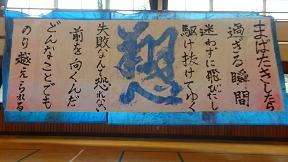 まばたきしたら
過ぎる瞬間
迷わずに飛びだし
駆け抜けてゆく
翔
失敗なんて恐れない
前を向くんだ
どんなことでも
のり越えられる